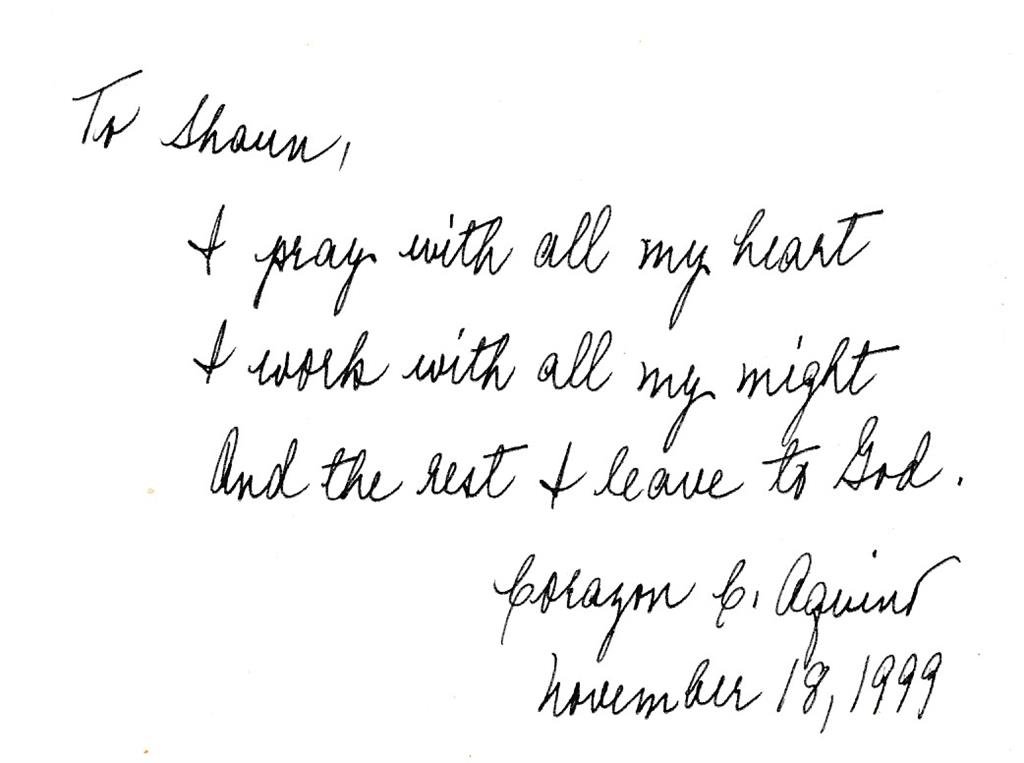 To Shaun,
I pray with all my heart
I work with all my might
And the rest I leave to God.
Corazon C. Aquino
November 18, 1999